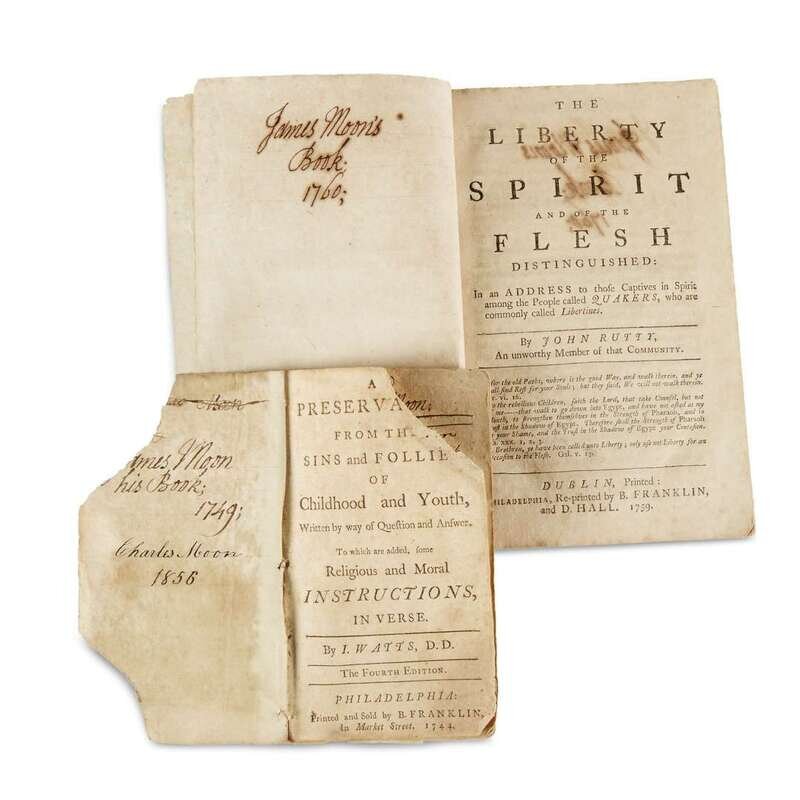 James Moon's
Book;
1760;
THE
LIBERTY
OF THE
SPIRIT
AND OF THE
FLESH
DISTINGUISHED:
In an ADDRESS to those Captives in Spirit
among the People called QUAKERS, who are
commonly called Libertines.
By JOHN RUTTY,
An unworthy Member of that COMMUNITY.
for the old Paths, where is the good Way, and walk therein, and ye
all find Rest for your Souls; but they said, We will not walk therein.
r. vi. 16.
the rebellious Children, saith the Lord, that take Counsel, but not
me—that walk to go down into Egypt, and have not asked at my
outh, to strengthen themselves in the Strength of Pharaoh, and to
ust in the Shadow of Egypt. Therefore shall the Strength of Pharaoh
your Shame, and the Trust in the Shadow of Egypt your Confusion.
xxx. 1, 2, 3.
Brethren, ye have been called unto Liberty; only use not Liberty for an
ccasion to the Flesh. Gal. v. 13.
DUBLIN, Printed:
HILADELPHIA, Re-printed by B. FRANKLIN,
and D. HALL. 1759.
Moon
ames Moon
his Book;
1749;
Charles Moon
1856
A
PRESERVA
Moon;
FROM TH
SINS and FOLLIE
OF
Childhood and Youth,
Written by way of Question and Answer.
To which are added, some
Religious and Moral
INSTRUCTIONS,
IN VERSE.
By I. WATTS, D.D.
The FOURTH EDITION.
PHILADELPHIA:
Printed and Sold by B. FRANKLIN,
in Market Street. 1744.